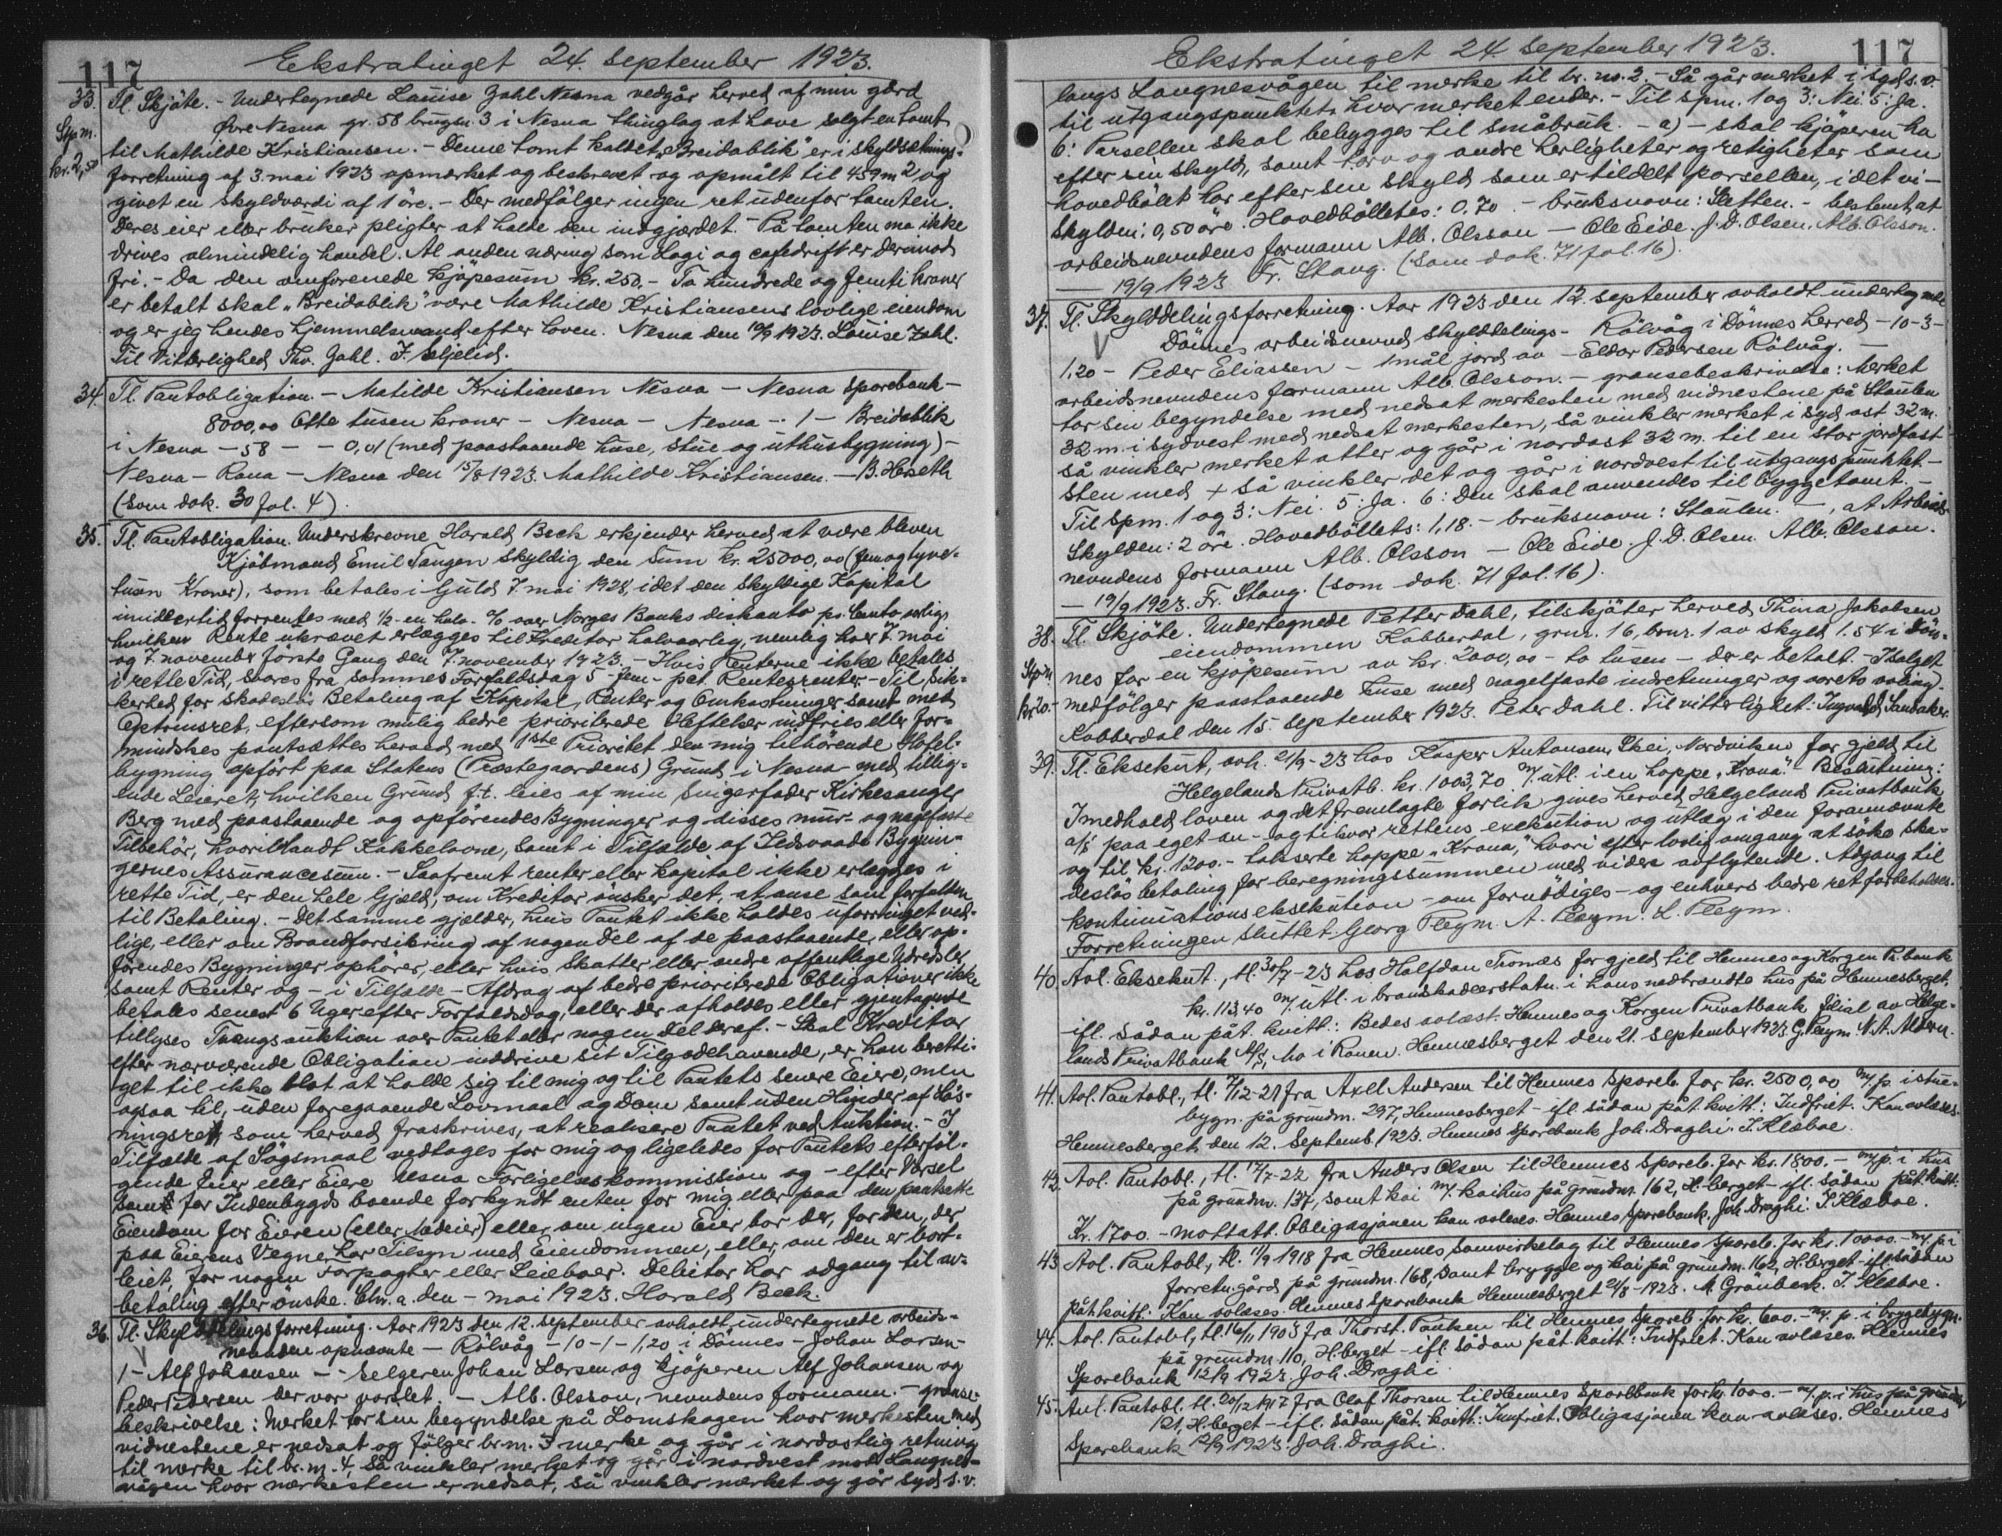 117
Ekstratinget 24. september 1923.
33. Tl. Skjöte. - Undertegnede Louise Zahl Nesna vedgår herved af min gård
Stpm. kr. 2,50
Övre Nesna gr. 58 brugsn. 3 i Nesna thinglag at have solgt en tomt
til Mathilde Kristiansen. - Denne tomt kaldet „Breidablik" er i skyldsætnings-
forretning af 3. mai 1923 opmerket og beskrevet og opmålt til 459 m2 og
givet en skyldværdi af 1 öre. - Der medfölger ingen ret udenfor tomten.
Deres eier eller bruker pligter at holde den indgjærdet. - På tomten må ikke
drives almindelig handel. Al anden næring som Logi og cafedrift er derimod
fri. - Da den omforenede kjöpesum kr. 250,- To hundrede og femti kroner
er betalt skal „Breidablik" være Mathilde Kristiansens lovlige eiendom
og er jeg hendes hjemmelsmand efter loven. Nesna den 19/9 1923. Louise Zahl.
Til Vitterlighed Thv. Zahl. F. Seljelid.
34. Tl. Pantobligation. - Matilde Kristiansen Nesna - Nesna sparebank -
8000,00 Otte tusen kroner - Nesna - Nesna - 1 - Breidablik
i Nesna - 58 - - 0,01 (med paastaaende huse, stue og uthusbygning) -
Nesna - Rana - Nesna den 15/8 1923. Mathilde Kristiansen. - B. Heseth
(som dok. 30 fol. 4).
35. Tl. Pantobligation. Underskrevne Harald Beck erkjender herved at være bleven
Kjöbmand Emil Tangen skyldig den Sum kr. 25000,00 (fem og tyve-
tusen Kroner), som betales i Guld 7. mai 1928, idet den skyldige Kapital
imidlertid forrentes med 1/2 - en halv - % over Norges Banks diskonto pr. Cento aarlig,
hvilken Rente ukrævet erlægges til Kreditor halvaarlig, nemlig hver 7. mai
og 7. november förste Gang den 7. november 1923. - Hvis Renterne ikke betales
i rette Tid, svares fra sammes Forfaldsdag 5 - fem - pct. Rentesrenter - Til Sik-
kerhed for skadeslös Betaling af Kapital, Renter og Omkostninger samt med
Optrinsret, eftersom mulig bedre prioriterede Heftelser indfries eller for-
mindskes pantsættes herved med 1ste Prioritet den mig tilhörende Hotel-
bygning opfört paa Statens (Præstegaardens) Grund i Nesna med tillig-
ende Leieret, hvilken Grund f.t. leies af min Svigerfader Kirkesanger
Berg med paastaaende og opförendes Bygninger og disses mur- og nagelfaste
Tilbehör, hvoriblandt Kakkelovne, samt i Tilfælde af Ildsvaade Bygnin-
gernes Assurancesum. - Saafremt renter eller kapital ikke erlægges i
rette Tid, er den hele Gjæld, om Kreditor önsker det, at anse som forfalden
til Betaling. - Det samme gjelder, hvis Pantet ikke holdes uforringet ved-
lige, eller om Brandforsikring af nogen Del af de paastaaende, eller op-
förendes Bygninger ophörer, eller hvis Skatter eller andre offentlige Udredsler
samt Renter og - i Tilfælde - Afdrag af bedre prioriterede Obligationer ikke
betales senest 6 Uger efter Forfaldsdag, eller der afholdes eller gjentagende
tillyses Tvangsauktion over Pantet eller nogen del deraf. - Skal Kreditor
efter nærværende Obligation inddrive sit Tilgodehavende, er han beretti-
get til ikke blot at holde sig til mig og til Pantets senere Eiere, men
ogsaa til, uden foregaaende Lovmaal og Dom samt uden Hinder af Lös-
ningsret, som herved fraskrives, at realisere Pantet ved Auktion. - I
Tilfælde af Sögsmaal vedtages for mig og ligeledes for Pantets efterföl-
gende Eier eller Eiere Nesna Forligelseskommission og - efter Varsel
samt for Indenbygds boende forkyndt enten for mig eller paa den pantsatte
Eiendom for Eieren (eller Medeier) eller om ingen Eier bor der, for den, der
paa Eierens Vegne har Tilsyn med Eiendommen, eller, om den er bort-
leiet, for nogen Forpagter eller Leieboer. Debitor har adgang til av-
betaling efter önske. Chr.a. den - mai 1923. Harald Beck.
36. Tl. Skylddelingsforretning. Aar 1923 den 12. september avholdt undertegnede arbeids-
nevndens opnævnte - Rölvåg - 10 - 1 - 1,20 i Dönnes - Johan Larsen -
1 - Alf Johansen - - selgeren Johan Larsen og kjöperen Alf Johansen og
Peder Pedersen der var varslet. - Alb. Olsson, nevndens formann. - grænse-
beskrivelse: Merket tar sin begyndelse på Lomskagen hvor merkesten med
vidnestene er nedsat og fölger br.nr. 3 merke og går i nordostlig retning
til merke til br.nr. 4, så vinkler merket og går i nordvest mod Langnes-
vågen hvor merkesten er nedsat, så vinkler merket og går syd s.v.
117
Ekstratinget 24. september 1923.
langs Langnesvågen til merke til br. no. 2. - Så går merket i syd s.v.
til utgangspunktet, hvor merket ender. - Til spm. 1 og 3: Nei. 5: Ja.
6: Parsellen skal bebygges til småbruk. - a) - skal kjöperen ha
efter sin skyld, samt torv og andre herligheter og retigheter som
hovedbölet har efter sin skyld som er tildelt parsellen, idet vi -
Skylden: 0,50 öre. Hovedböllets: 0,70 - bruksnavn: Sletten. - bestemt, at
arbeidsnevndens formann Alb. Olsson - Ole Eide. J. D. Olsen. Alb. Olsson.
- 19/9 1923 Fr. Stang. (som dok. 71 fol. 16).
37. Tl. Skylddelingsforretning. Aar 1923 den 12. september avholdt undertegnede
Dönnes arbeidsnevnd skylddelings - Rölvåg i Dönnes herred - 10 - 3 -
1,20 - Peder Eliassen - 1 mål jord av - Eldar Pedersen Rölvåg. -
arbeidsnevndens formann Alb. Olsson. - grænsebeskrivelse: Merket
tar sin begyndelse med nedsat merkesten med vidnestene på Staulen
32 m. i sydvest med nedsat merkesten, så vinkler merket i syd ost 32 m.
så vinkler merket atter og går i nordost 32 m. til en stor jordfast
Sten med + så vinkler det og går i nordvest til utgangspunktet -
Til spm. 1 og 3: Nei. 5: Ja. 6: Den skal anvendes til byggetomt. -
Skylden: 2 öre. Hovedböllets: 1,18. - bruksnavn: Staulen. -, at Arbeids-
nevndens formann Alb. Olsson - Ole Eide. J. D. Olsen. Alb. Olsson.
- 19/9 1923. Fr. Stang. (som dok. 71 fol. 16).
38. Tl. Skjöte. Undertegnede Petter Dahl, tilskjöter herved Thina Jakobsen
Stpm kr 20.-
eiendommen Kobberdal, grnr. 16, brnr. 1 av skyld 1.54 i Dön-
nes for en kjöpesum av kr. 2000,00 - to tusen - der er betalt. - I salget
medfölger paastaaende huse med nagelfaste indretninger og årets avling.
Kobberdal den 15. september 1923. Peter Dahl. Til vitterlighet: Ingvald Sandaker.
39. Tl. Eksekut, avh. 21/9 - 23 hos Kasper Antonsen, Skei, Nordviken for gjeld til
Helgelands Privatb. kr. 1003,70 m/ utl. i en hoppe „Krona". - Beslutning:
I medhold loven og det fremlagte forlik gives herved Helgelands Privatbank
a/s paa eget an- og tilsvar rettens exekution og utlæg i den forannævnte
og til kr. 1200.- takserte hoppe „Krona", hvori efter lovlig omgang at söke ska-
deslös betaling for beregningssummen med videre avflytende. Adgang til
kontinuationseksekution - om fornödiges - og enhvers bedre ret forbeholdes.
Forretningen sluttet. Georg Pleym. A. Pleym. L. Pleym.
40. Avl. Eksekut., tl. 30/7 - 23 hos Halfdan Tronæs for gjeld til Hemnes og Korgen Pr.bank
kr. 113,40 m/ utl. i brandskadeerstatn. i hans nedbrændte hus på Hemnesberget,
- ifl. sådan påt. kvitt.: Bedes avlæst. Hemnes og Korgen Privatbank filial av Helge-
lands Privatbank A/S, Mo i Ranen. Hemnesberget den 21. september 1923. G. Pleym. N. A. Aldern.
41. Avl. Pantobl., tl. 7/12 - 21 fra Axel Andersen til Hemnes Spareb. for kr. 2500,00 m/. p. i stue-
bygn. på grundnr. 297, Hemnesberget - ifl. sådan påt. kvitt.: Indfriet. Kan avlæses.
Hemnesberget, den 12. Septemb. 1923. Hemnes Sparebank Joh. Draghi. I. Klæboe.
42. Avl. Pantobl., tl. 17/7 - 22 fra Anders Olsen til Hemnes Spareb. for kr. 1800. - m/p. i hus
på grundnr. 137, samt kai m/. kaihus på grundnr. 162, H.berget - ifl. sådan påt. kvitt:
Kr. 1700. - mottatt. Obligasjonen kan avlæses. Hemnes Sparebank. Joh. Draghi. I. Klæboe.
43. Avl. Pantobl., tl. 11/9 1918 fra Hemnes Samvirkelag til Hemnes Spareb. for kr. 10000. - m/. p. i
forretn.gård på grundnr. 168, samt brygge og kai på grundnr. 162, H.berget - ifl. sådan
påt. kvitt: Kan avlæses. Hemnes Sparebank Hemnesberget 21/8 - 1923. M. Grönbech. I. Klæboe.
44. Avl. Pantobl., tl. 16/11 1903 fra Thorst. Paulsen til Hemnes Spareb. for kr. 600. - m/. p. i bryggebygn.
på grundnr. 110, H.berget - ifl. sådan påt. kvitt: Indfriet. Kan avlæses. Hemnes
Sparebank 12/9 1923. Joh. Draghi.
45. Avl. Pantobl. tl. 20/12 1917 fra Olaf Thorsen til Hemnes Sparebank for kr. 1000. - m/. p. i hus på grundnr.
121, H.berget - ifl. sådan påt. kvitt: Innfriet. Obligasjonen kan avlæses. Hemnes
Sparebank 12/9 1923. Joh. Draghi.